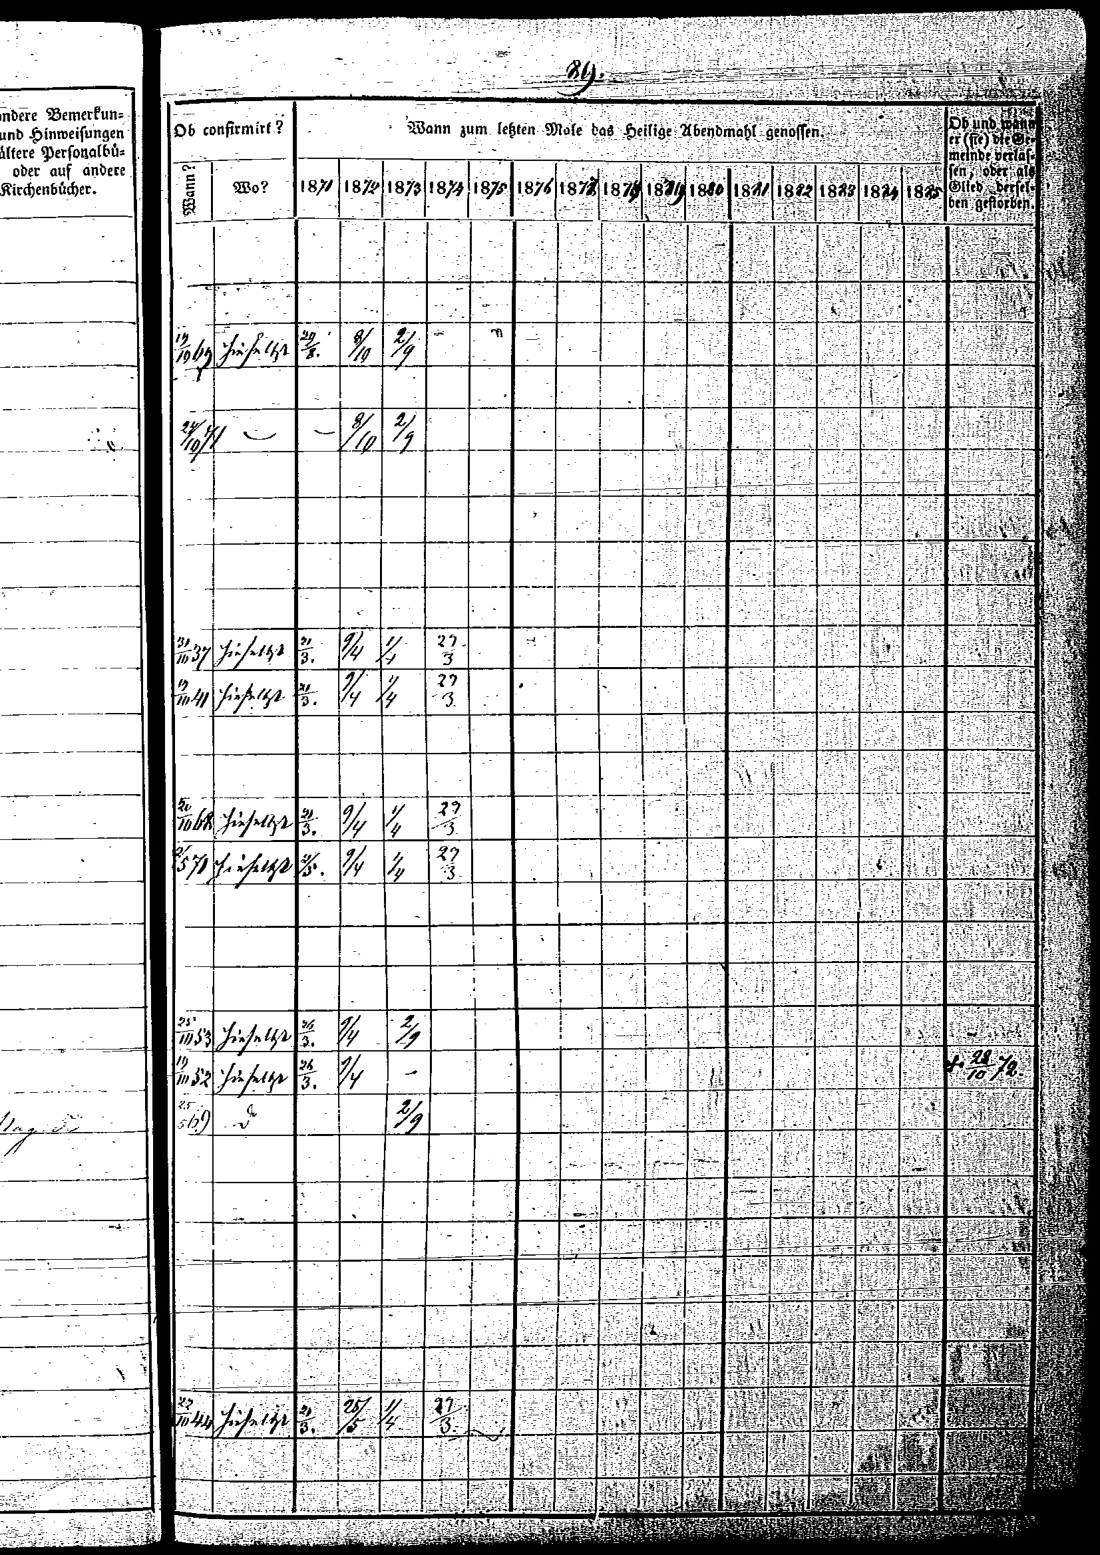 89.
ondere Bemerkun=
und Hinweisungen
ältere Personalbü=
oder auf andere
Kirchenbücher.
Ob confirmirt?
Wann zum letzten Male das Heilige Abendmahl genossen.
Ob und wann
er (sie) die Ge=
meinde verlas=
sen, oder als
Glied dersel=
ben gestorben.
Wann? Wo? 1871 1872 1873 1874 1875 1876 1877 1878 1879 1880 1881 1882 1883 1884 1885
19/10 69 hieselbst 29/8. 8/10 2/9
24/10 71 — — 8/10 2/9
31/10 37 hieselbst 21/3. 9/4 1/4 29/3
19/10 41 hieselbst 21/3. 9/4 1/4 29/3
20/10 68 hieselbst 21/3. 9/4 1/4 29/3
2/5 71 hieselbst 2/5. 9/4 1/4 29/3
25/10 53 hieselbst 26/3. 9/4 2/9
19/10 52 hieselbst 26/3. 9/4 - †. 28/10 72.
25/5 69 d 2/9
22/10 44 hieselbst 21/3. 25/5 1/4 29/3.